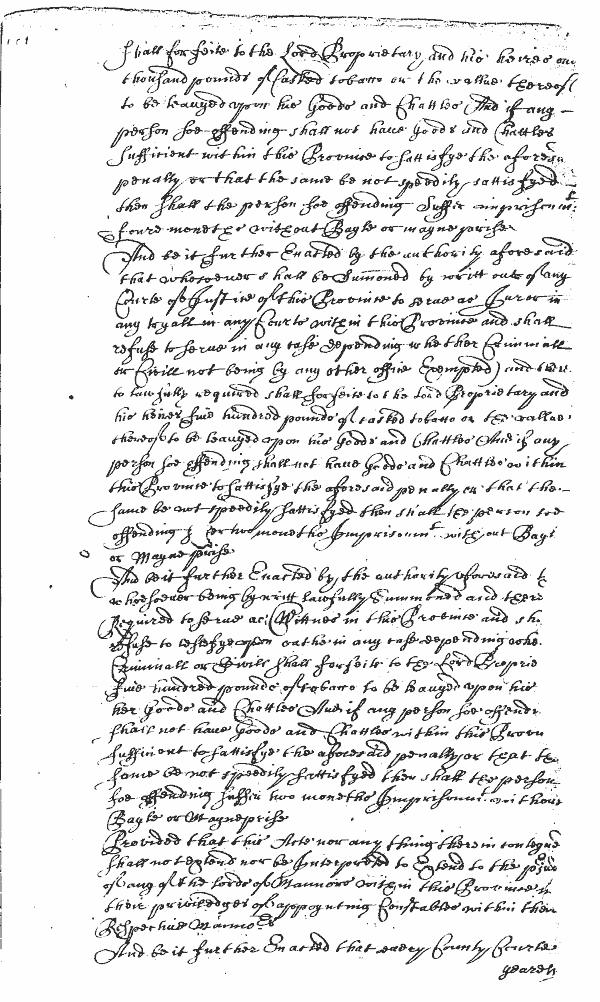 shall forfeite to the Lord Proprietary and his heires one
thousand pounds of Casked tobacco or the vallue thereof
to be leavyed upon his Goods and Chattles And if any
person soe offending shall not have Goods and Chattles
sufficient within this Province to sattisfye the aforesd
penalty or that the same be not speedily sattisfyed
then shall the person soe offending Suffer imprisonmt
foure moneths without Bayle or mayneprise
And be it further Enacted by the authority aforesaid
that whosoever shall be Summoned by writt out of any
Courte of Justice of this Province to serve as Juror in
any tryall in any Courte within this Province and shall
refuse to serve in any case depending whether Criminall
or Civill not being by any other office Exempted) and there
to lawfully required shall forfeite to the Lord Proprietary and
his heires five hundred pounds of casked tobacco or the vallue
thereof to be leavyed upon his Goods and Chattles And if any
person soe offending shall not have Goods and Chattles within
this Province to sattisfye the aforesaid penalty or that the
same be not speedily sattisfyed then shall the person soe
offending suffer two moneths Imprisonmt without Bayl
or Mayneprise
And be it further Enacted by the authority aforesaid t
whosoever being by writt lawfully Summoned and there
Required to serve as Wittnes in this Province and sh
refuse to testefye upon oath in any case depending whe
Criminall or Civill shall forfeite to the Lord Proprie
five hundred pounds of tobacco to be leavyed upon his
her Goods and Chattles And if any person soe offendi
shall not have Goods and Chattles within this Provin
sufficient to sattisfye the aforesaid penalty or that th
same be not speedily sattisfyed then shall the person
soe offending suffer two moneths Imprisonmt without
Bayle or Mayneprise
Provided that this Acte nor any thing therein conteyne
shall not extend nor be Interpreted to Extend to the pjud
of any of the lords of Mannors within this Province in
their priviledges of appoynting Constables within their
Respective Mannors
And be it further Enacted that every County Courte
yearely